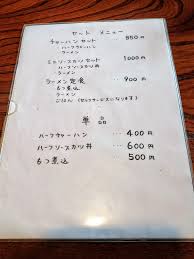 セット メニュー
チャーハンセット 850円
ハーフチャーハン
ラーメン
ミニソースカツセット 1000円
ハーフソースカツ丼
ラーメン
ラーメン定食 900円
もつ煮込
ラーメン
ごはん (セルフサービスになります)
単 品
ハーフチャーハン … 400円
ハーフソースカツ丼 … 600円
もつ煮込 … 500円